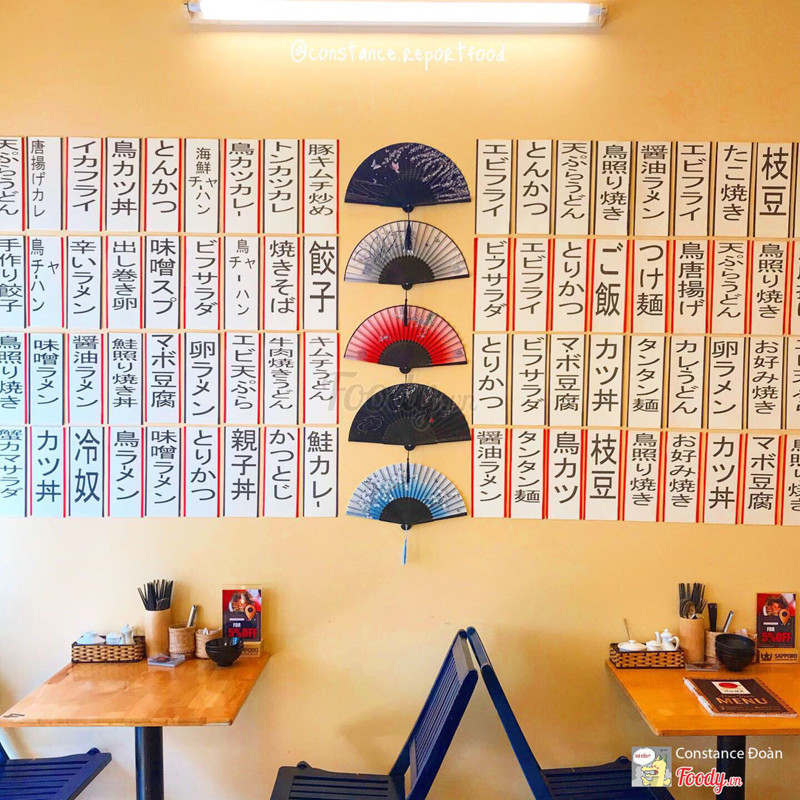 @constance.reportfood
天ぷらうどん
唐揚げカレ
イカフライ
鳥カツ丼
とんかつ
海鮮チャーハン
鳥カツカレー
トンカツカレ
豚キムチ炒め
手作り餃子
鳥チャーハン
辛いラメン
出し巻き卵
味噌スプ
ビラサラダ
鳥チャーハン
焼きそば
餃子
鳥照り焼き
味噌ラメン
醤油ラメン
鮭照り焼き丼
マボ豆腐
卵ラメン
エビ天ぷら
牛肉焼きうどん
キムチうどん
蟹カマサラダ
カツ丼
冷奴
鳥ラメン
味噌ラメン
とりかつ
親子丼
かつとじ
鮭カレー
エビフライ
とんかつ
天ぷらうどん
鳥照り焼き
醤油ラメン
エビフライ
たこ焼き
枝豆
ビラサラダ
エビフライ
とりかつ
ご飯
つけ麺
鳥唐揚げ
天ぷらうどん
鳥照り焼き
とりかつ
ビラサラダ
マボ豆腐
カツ丼
タンタン麺
カレうどん
卵ラメン
お好み焼き
醤油ラメン
タンタン麺
鳥カツ
枝豆
鳥照り焼き
お好み焼き
カツ丼
マボ豆腐
Foody.vn
FOR
5% OFF
FOR
5% OFF
SAPPORO
MENU
Constance Đoàn
Foody.vn